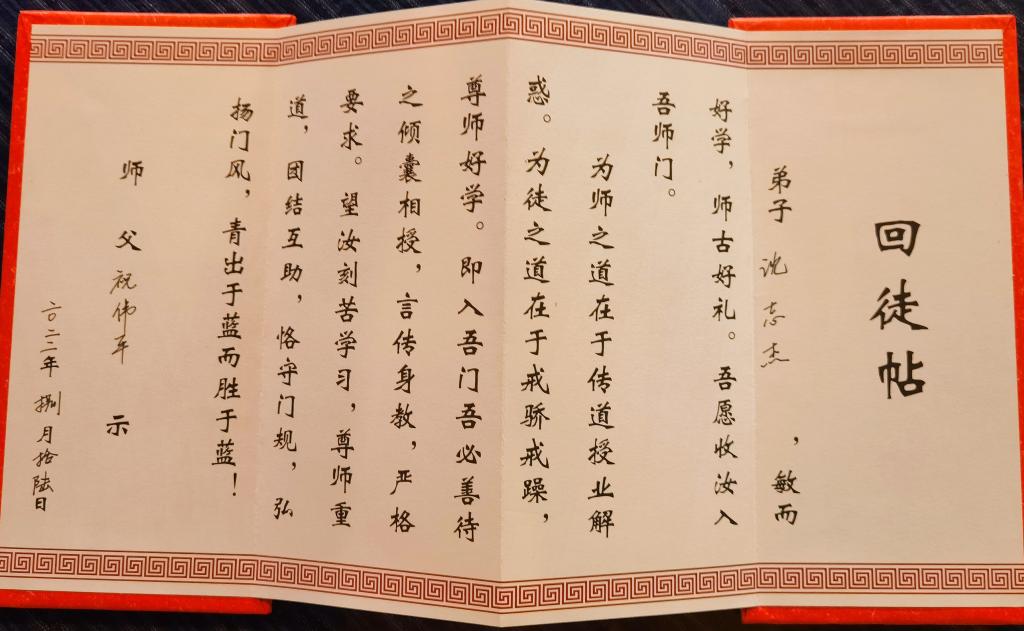 回徒帖
弟子 沈志杰 ，敏而
好学，师古好礼。吾愿收汝入
吾师门。
为师之道在于传道授业解
惑。为徒之道在于戒骄戒躁，
尊师好学。即入吾门吾必善待
之倾囊相授，言传身教，严格
要求。望汝刻苦学习，尊师重
道，团结互助，恪守门规，弘
扬门风，青出于蓝而胜于蓝！
师父 祝伟车 示
二〇二二年 捌月拾陆日